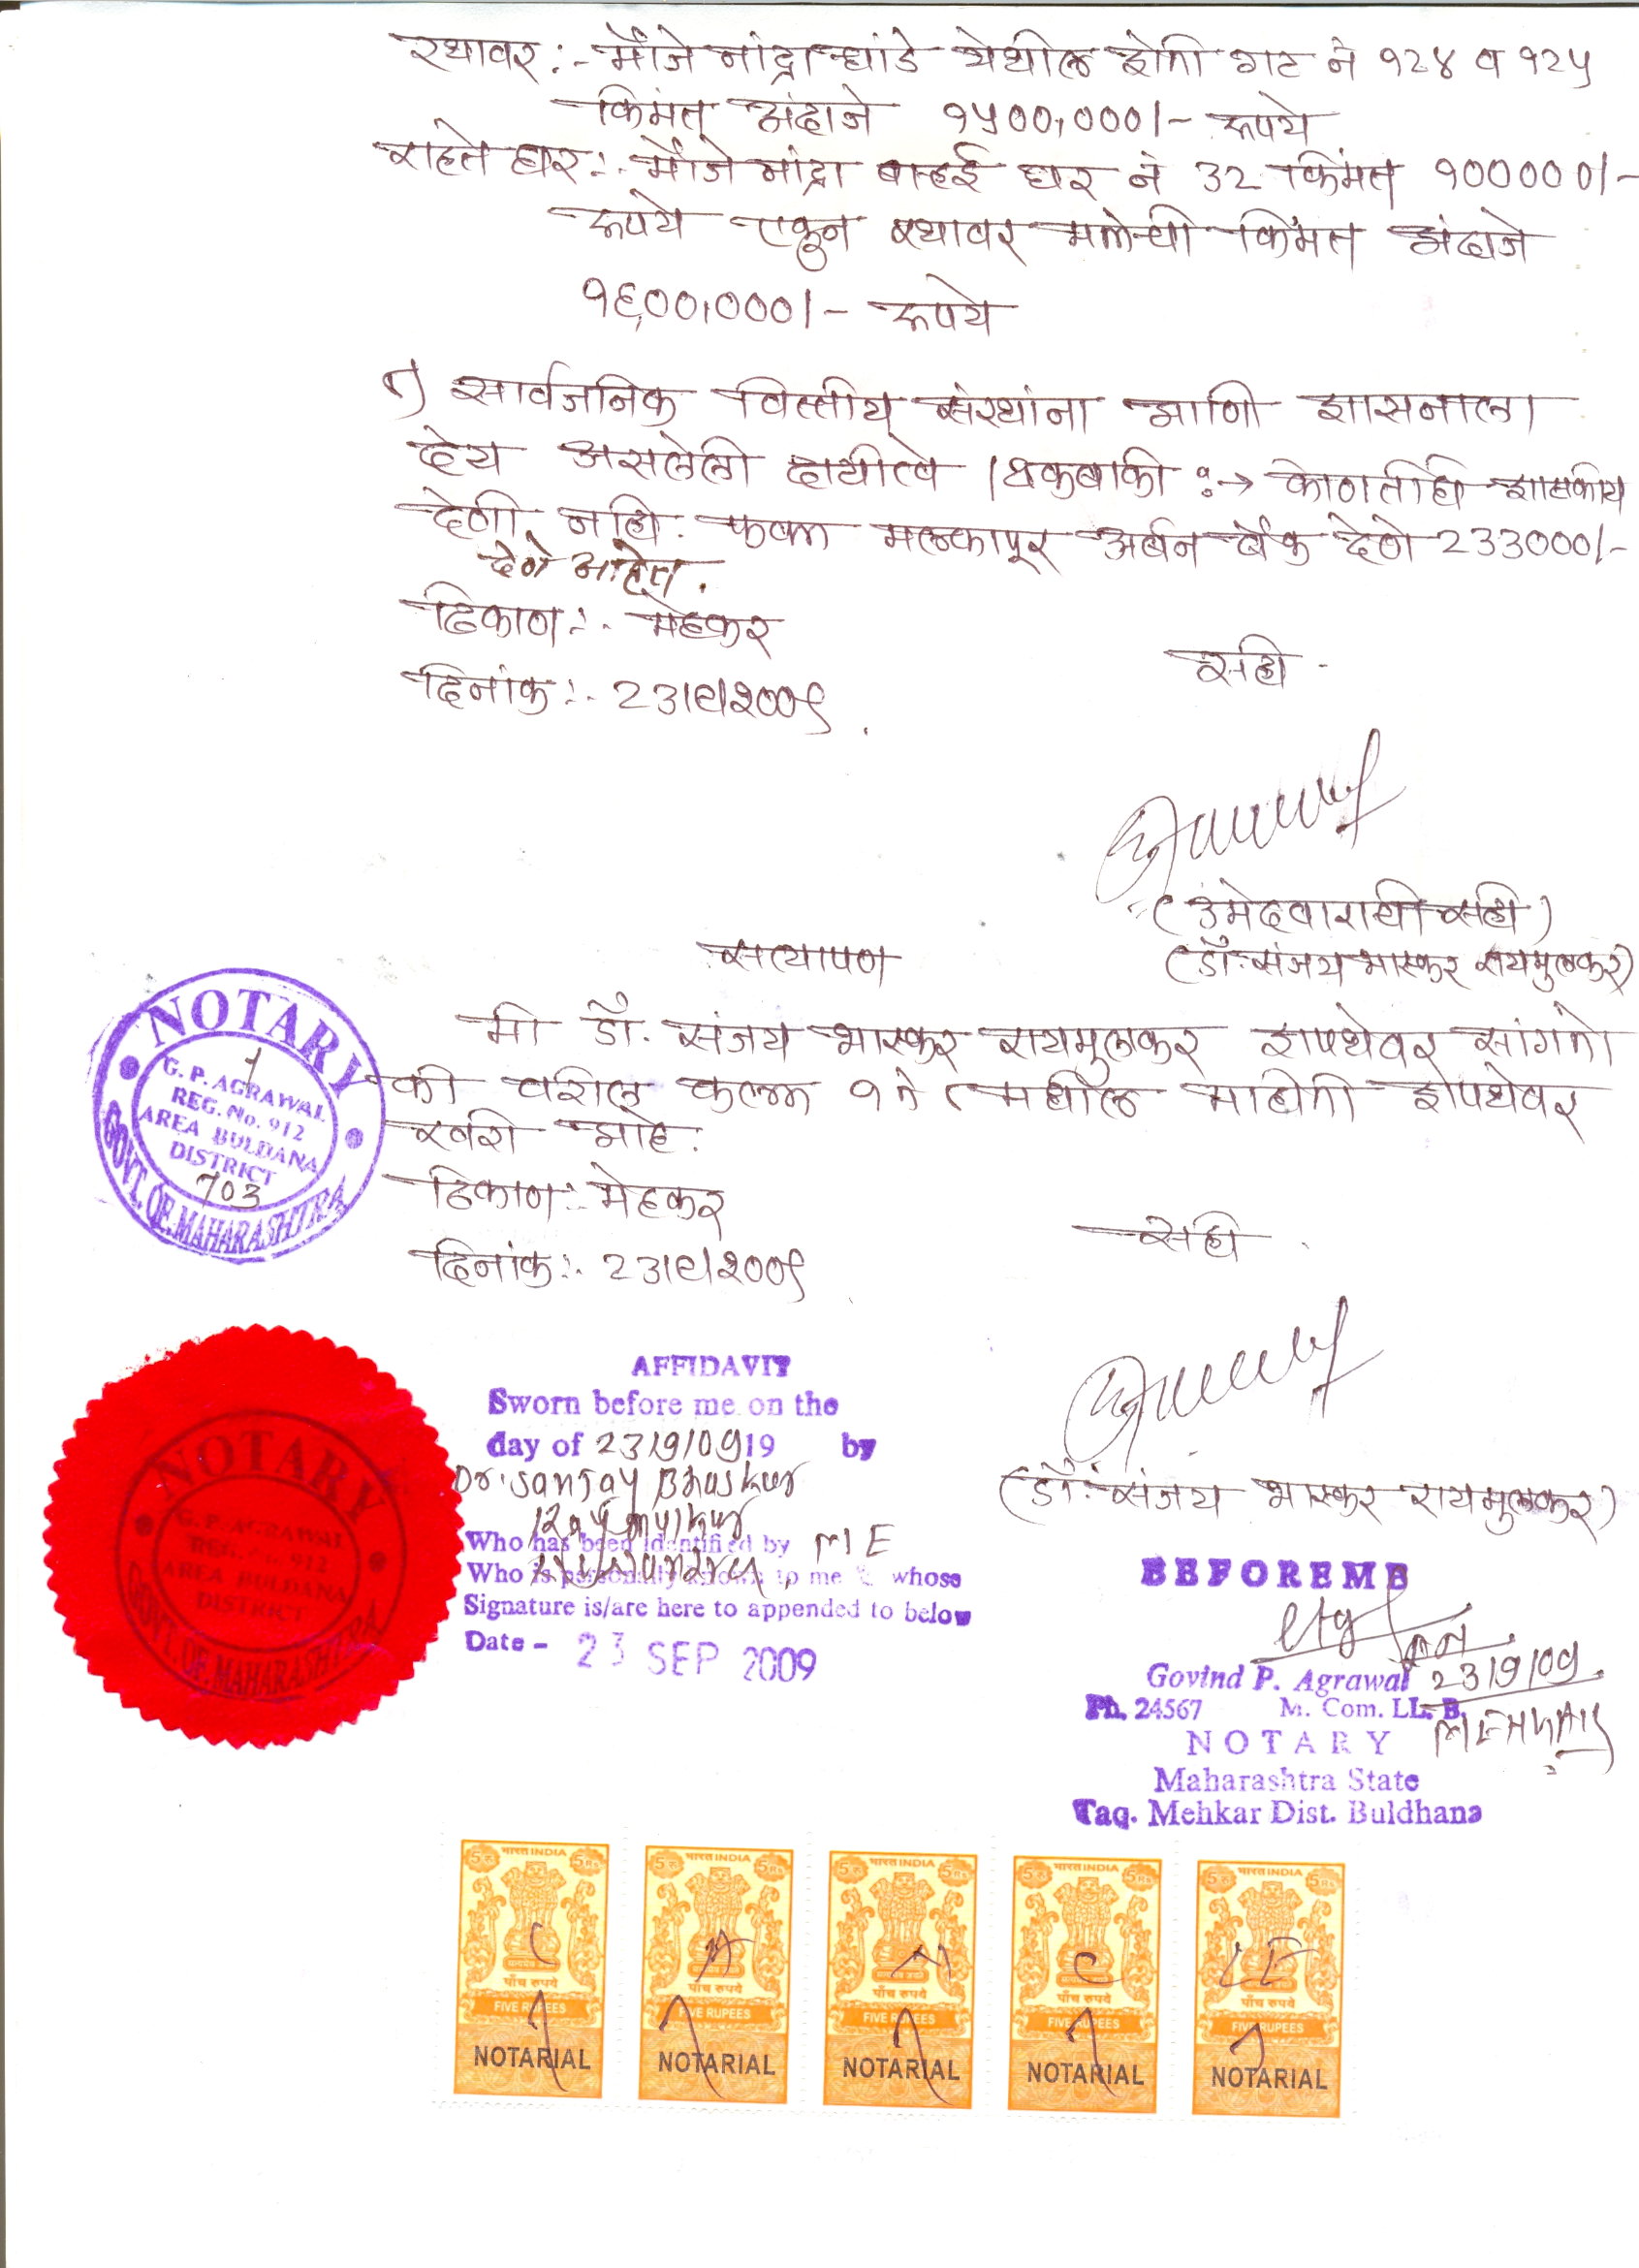 स्थावर :- मौजे नांद्रा धांडे येथील शेती गट नं १२४ व १२५
किंमत अंदाजे १५००,०००/- रूपये
राहते घर :- मौजे नांद्रा बाऱ्हई घर नं 32 किंमत १०००००/-
रूपये एकून स्थावर मत्तेची किंमत अंदाजे
१६००,०००/- रूपये
सार्वजनिक वित्तीय संस्थांना आणि शासनाला
देय असलेली दायीत्वे / थकबाकी :→ कोणतीहि शासकीय
देणी नाहि. फक्त मलकापूर अर्बन बँक देणे 233000/-
देणे आहेत.
ठिकाण :- मेहकर
सहि -
दिनांक :- 23/९/२००९
(उमेदवाराची सही)
सत्यापण
(डॉ. संजय भास्कर रायमुलकर)
मी डॉ. संजय भास्कर रायमुलकर शपथेवर सांगतो
की वरील कलम १ ते ८ मधील माहीती शपथेवर
खरी आहे.
ठिकाण :- मेहकर
सहि
दिनांक :- 23/९/२००९
NOTARY
G. P. AGRAWAL
REG. No. 912
AREA BULDANA
DISTRICT
703
GOVT. OF. MAHARASHTRA
(डॉ. संजय भास्कर रायमुलकर)
NOTARY
G. P. AGRAWAL
REG. No. 912
AREA BULDANA
DISTRICT
GOVT. OF. MAHARASHTRA
AFFIDAVIT
Sworn before me on the
day of 23/9/09 19 by
Dr. Sanjay Bhaskar
Raymulkar
Who has been identified by ME
Who is personally known to me & whose
Signature is/are here to appended to below
Date - 23 SEP 2009
BEFORE ME
23/9/09
Govind P. Agrawal
Ph. 24567 M. Com. LL. B.
MEHKAR
NOTARY
Maharashtra State
Taq. Mehkar Dist. Buldhana
5 रु भारत INDIA 5 Rs
पाँच रुपये
FIVE RUPEES
NOTARIAL
5 रु भारत INDIA 5 Rs
पाँच रुपये
FIVE RUPEES
NOTARIAL
5 रु भारत INDIA 5 Rs
पाँच रुपये
FIVE RUPEES
NOTARIAL
5 रु भारत INDIA 5 Rs
पाँच रुपये
FIVE RUPEES
NOTARIAL
5 रु भारत INDIA 5 Rs
पाँच रुपये
FIVE RUPEES
NOTARIAL